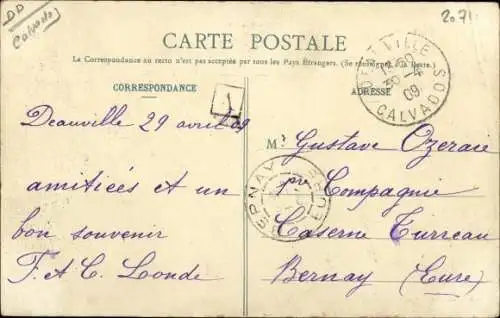 DP
Calvados
2071
CARTE POSTALE
La Correspondance au recto n'est pas acceptée par tous les Pays Étrangers. (Se renseigner à la Poste.)
CORRESPONDANCE
ADRESSE
1
DEAUVILLE
30 -4
09
CALVADOS
Deauville 29 avril 09
amitiées et un
bon souvenir
F. et C. Londe
BERNAY
EURE
Mr Gustave Ozeraie
1re Compagnie
Caserne Turreau
Bernay (Eure)